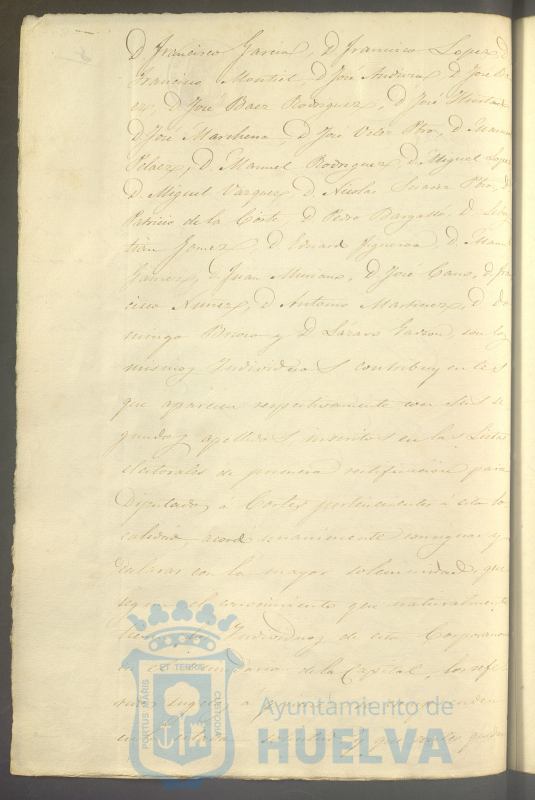 D Francisco Garcia, D Francisco Lopez, D
Francisco Montiel, D José D José
D José Baez Rodriguez, D José
D José Marchena, D José Velez Pbro, D. Manuel
Velaez, D. Manuel Rodriguez, D. Miguel Lopez
D. Miguel Vazquez D Nicolas Suarez Pbro, D
Patricio de la Corte D Pedro Bargalló, D. Sebas
tian Jamez, D Eduard Figueroa, D. Manuel
D. Juan D José Cano, D Fran
cisco Nuñez, D Antonio Martinez, D Do
mingo y D Lázaro Garzon, son los
mismos Individuos contribuyentes
que aparecen respectivamente con sus se
gundos apellidos inscritos en las Listas
electorales de primera rectificacion para
Diputados á Cortes pertenecientes á esta lo
calidad, acordó unanimemente consignar y
declarar con la mayor solemnidad, que
segun el conocimiento que naturalmente
tienen los Individuos de esta Corporacion
en el vecindario de la Capital, los refe
á
y que
PORTUS MARIS
ET TERRÆ
CUSTODIA
Ayuntamiento de
HUELVA